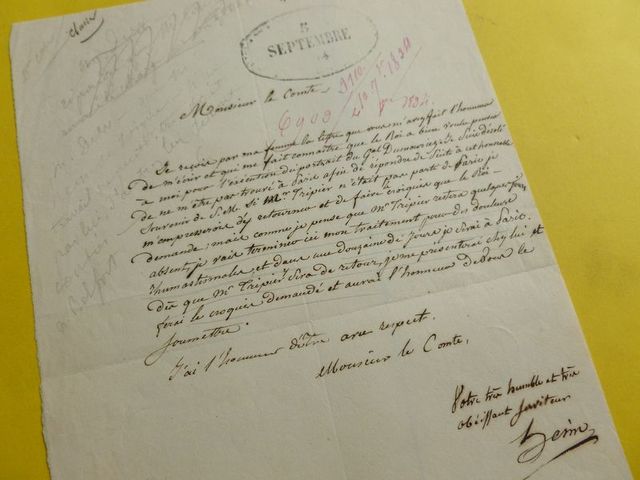 classer
5
SEPTEMBRE
Monsieur le Comte
6909
1834
Je reçois par ma femme la lettre que vous m'avez fait l'honneur
de m'écrire et qui me fait connaître que le Roi a bien voulu penser
à moi pour l'exécution du portrait du Gal Dumouriez. Je suis désolé
de ne m'être pas trouvé à Paris afin de répondre de suite à cet honorable
souvenir de S.M. Si Mr Tripier n'était pas parti de Paris je
m'empresserois d'y retourner et de faire le croquis que le Roi
demande; mais comme je pense que Mr Tripier restera quelque tems
absent je vais terminer ici mon traitement pour des douleurs
rhumastismales et dans une douzaine de jours je serai à Paris.
Dès que Mr Tripier sera de retour, je me présenterai chez lui et
ferai le croquis demandé et aurai l'honneur de vous le
soumettre.
J'ai l'honneur d'être avec respect.
Monsieur le Comte,
Votre très humble et très
obéissant serviteur